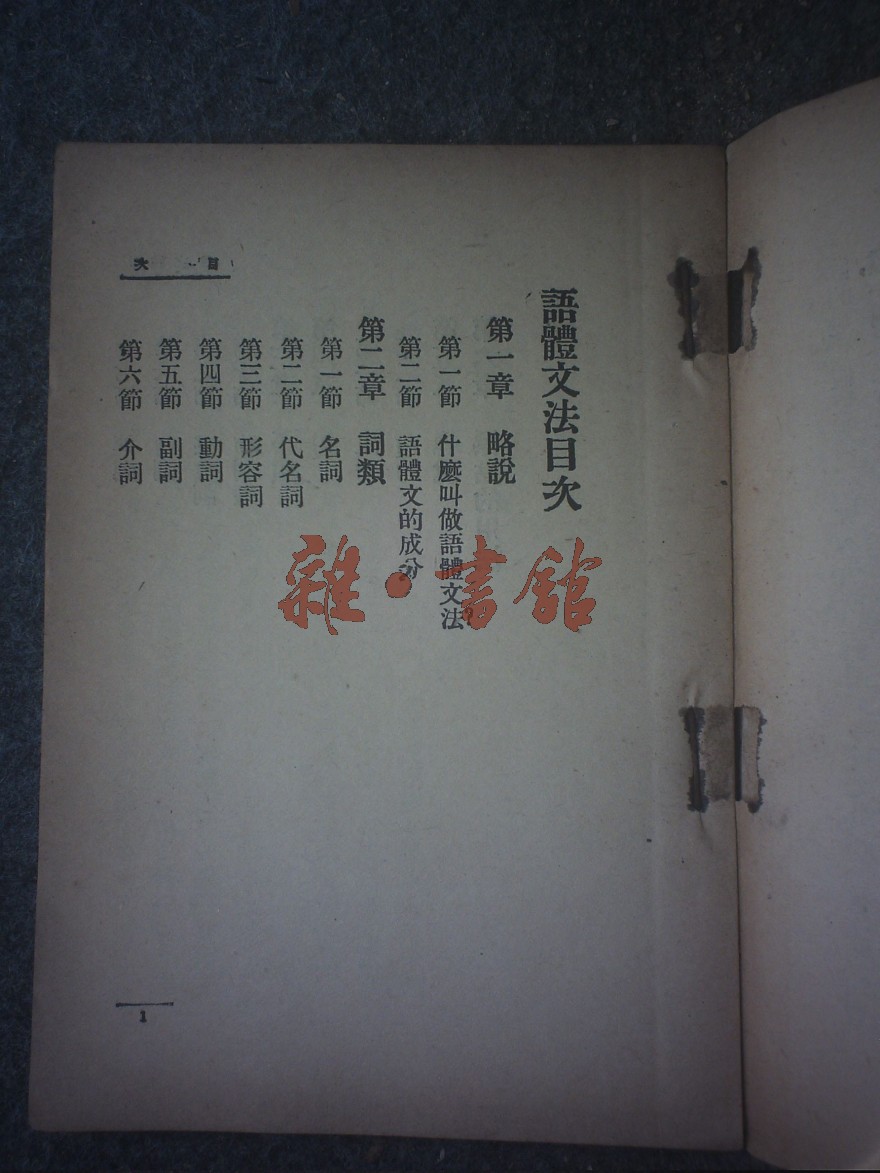 語體文法目次
第一章 略說
第一節 什麼叫做語體文法
第二節 語體文的成分
第二章 詞類
第一節 名詞
第二節 代名詞
第三節 形容詞
第四節 動詞
第五節 副詞
第六節 介詞
目次
1
雜·書館